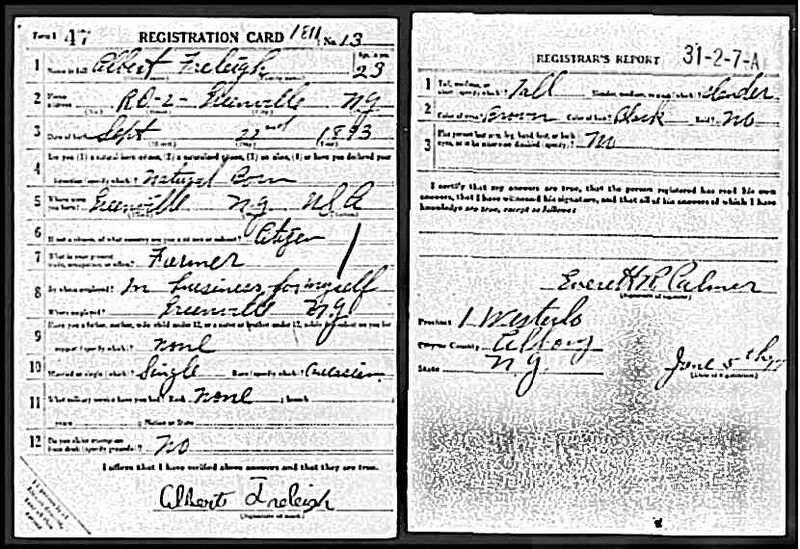 Form 1 47 REGISTRATION CARD 1811 No. 13
1 Name in full Albert Freleigh Age, in yrs. 23
2 Home address RD-2- Greenville N.Y.
3 Date of birth Sept 22nd 1893
4 Are you (1) a natural born citizen, (2) a naturalized citizen, (3) an alien, (4) or have you declared your
intention (specify which)? Natural Born
5 Where were you born? Greenville N.Y. USA
6 If not a citizen, of what country are you a citizen or subject? Citizen
7 What is your present trade, occupation, or office? Farmer
8 By whom employed? In business for myself
Where employed? Greenville N.Y.
9 Have you a father, mother, wife, child under 12, or a sister or brother under 12, solely dependent on you for
support (specify which)? none
10 Married or single (which)? Single Race (specify which)? Caucasian
11 What military service have you had? Rank none branch
years Nation or State
12 Do you claim exemption from draft (specify grounds)? No
I affirm that I have verified above answers and that they are true.
Albert Freleigh
(Signature or mark)
REGISTRAR'S REPORT 31-2-7-A
1 Tall, medium, or short (specify which)? Tall Slender, medium, or stout (which)? Slender
2 Color of eyes? Brown Color of hair? Black Bald? No
3 Has person lost arm, leg, hand, foot, or both eyes, or is he otherwise disabled (specify)? No
I certify that my answers are true, that the person registered has read his own
answers, that I have witnessed his signature, and that all of his answers of which I have
knowledge are true, except as follows:
Everett R Palmer
(Signature of registrar)
Precinct 1 Westerlo
City or County Albany
State N.Y. June 5th 17
(Date of registration)